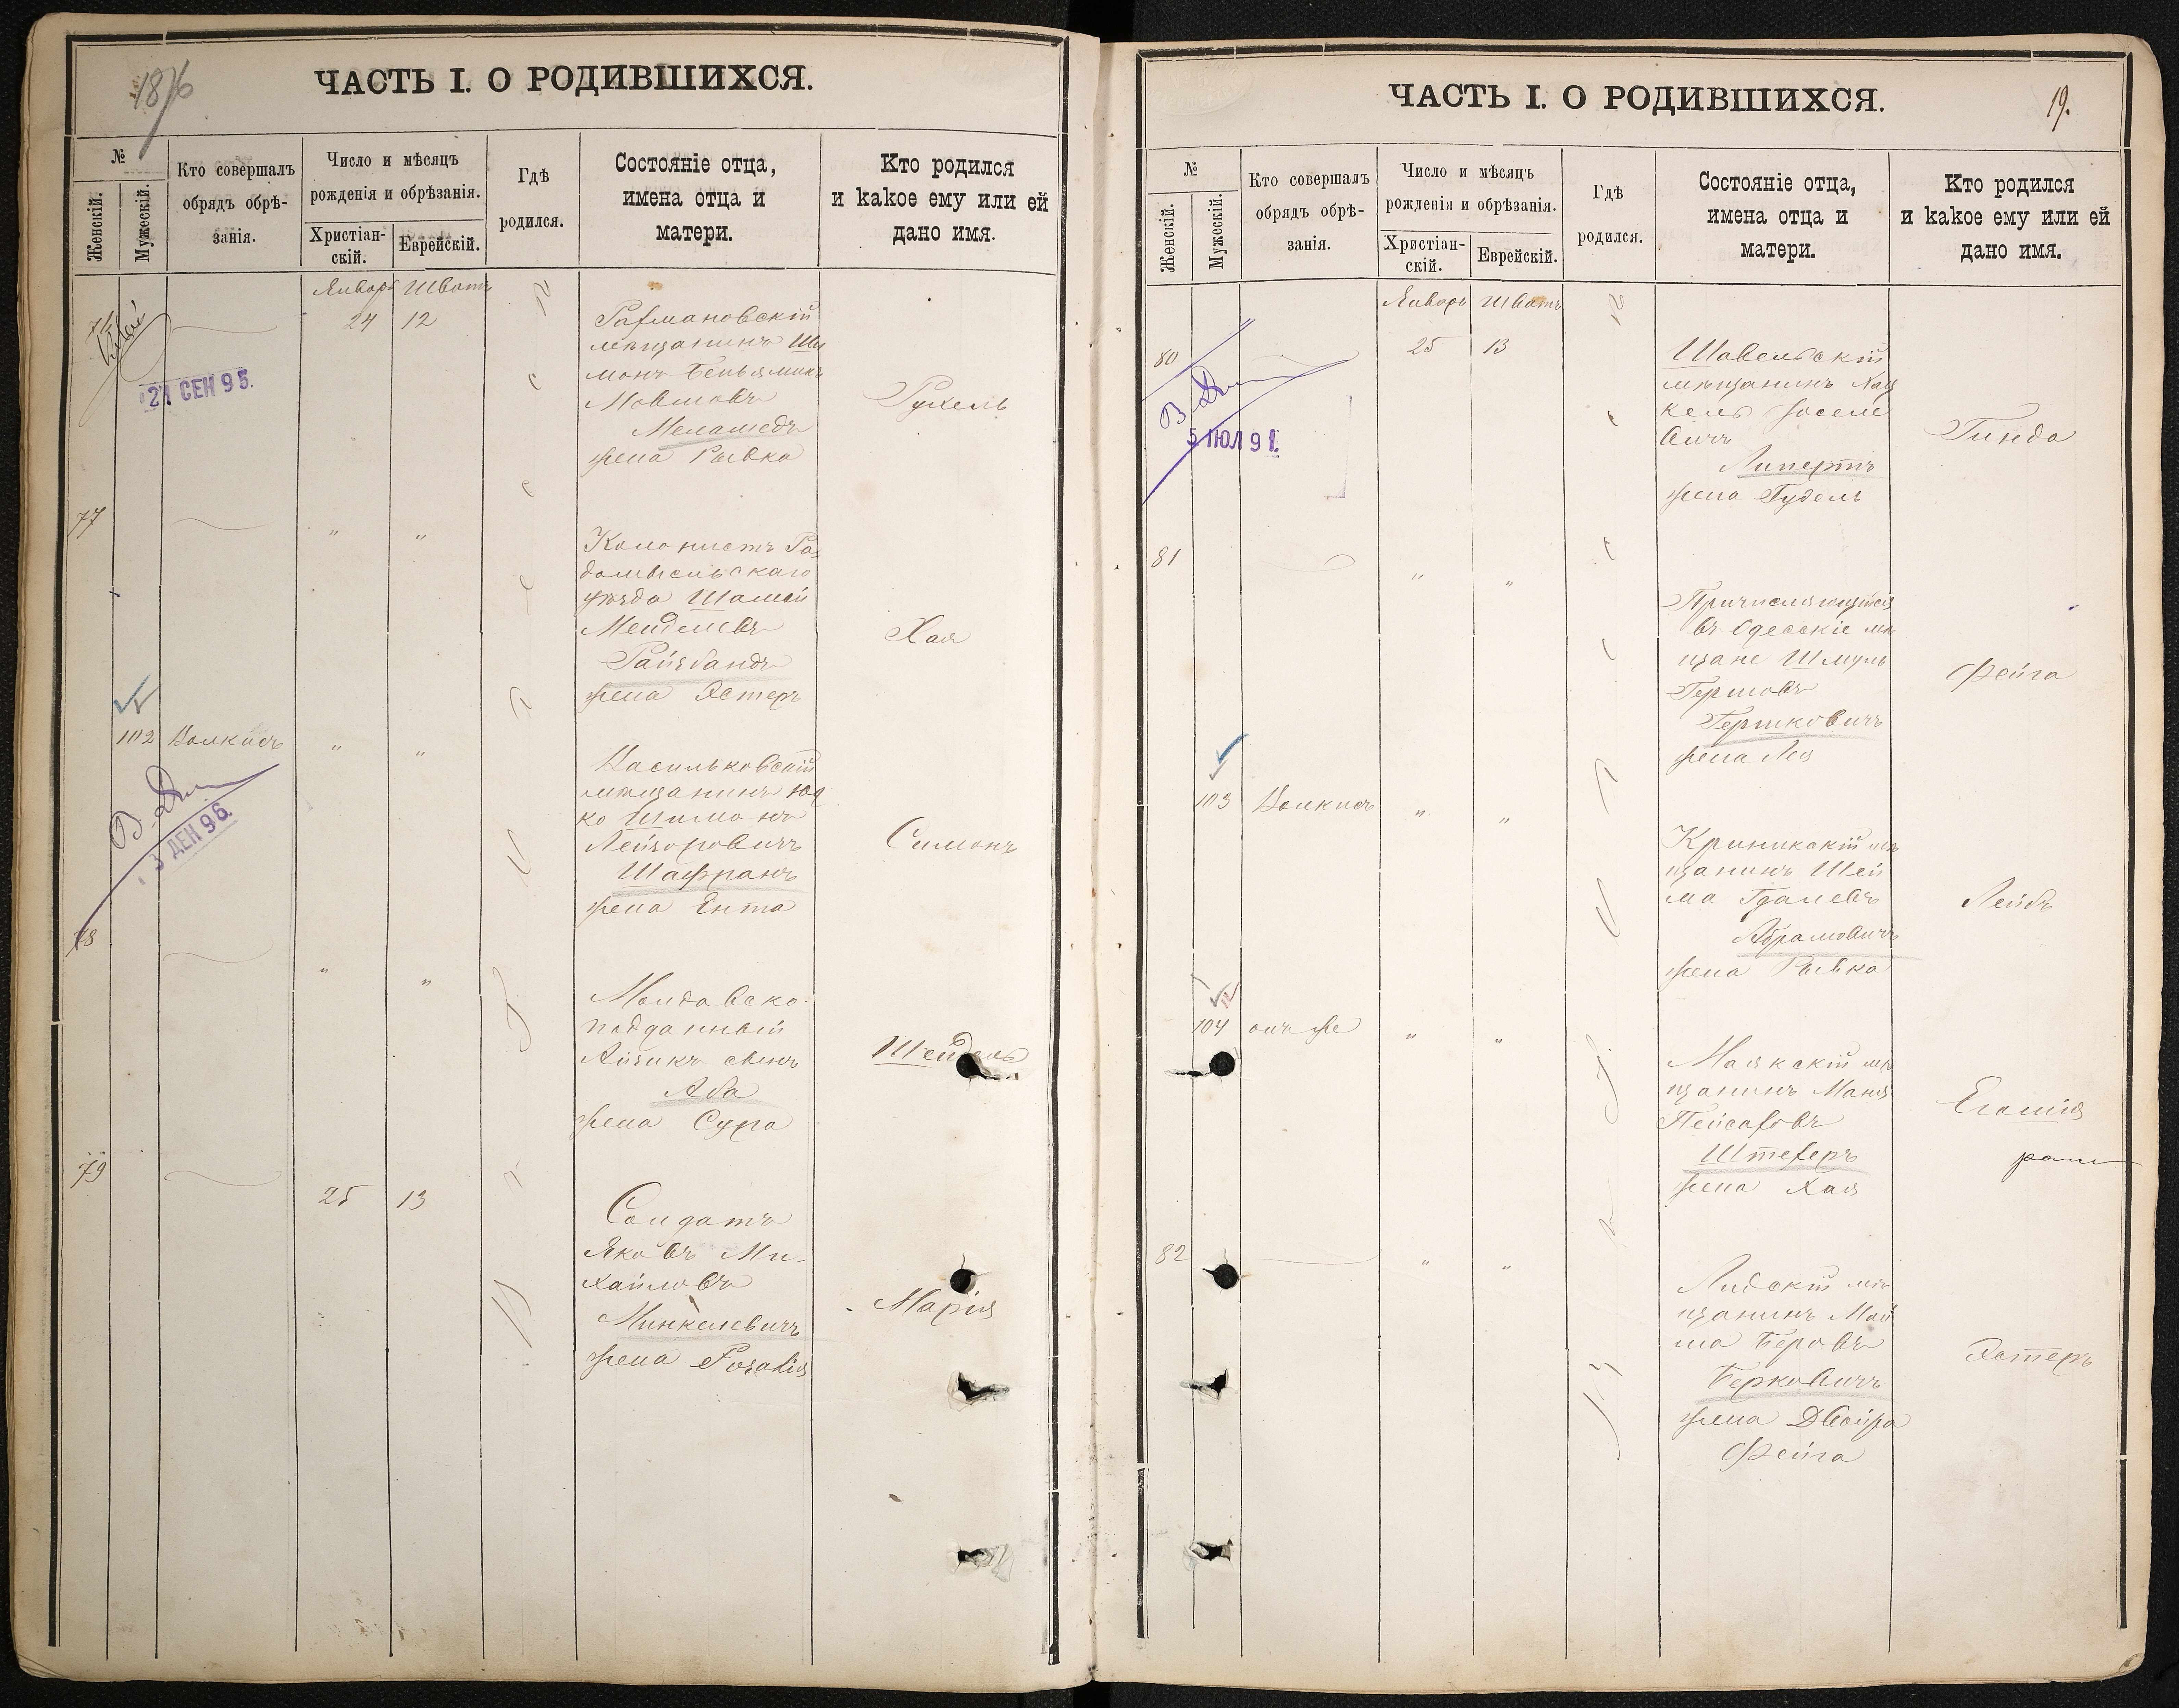 1876
ЧАСТЬ I. О РОДИВШИХСЯ.
№
Женскій.
Мужескій.
Кто совершалъ
обрядъ обрѣ-
занія.
Число и мѣсяцъ
рожденія и обрѣзанія.
Христіан-
скій.
Еврейскій.
Гдѣ
родился.
Состояніе отца,
имена отца и
матери.
Кто родился
и какое ему или ей
дано имя.
Январь Шватъ
24 12
21 СЕН 95.
Рахмановскій
мѣщанинъ Ши
монъ Беньяминъ
Мовшовъ
Меламедъ
жена Рывка
Рухель
77
" "
Колонистъ Ра-
домысльскаго
уѣзда Шамай
Менделевъ
Райзбандъ
жена Эстеръ
Хая
102 Волкисъ " "
3 ДЕН 96.
Васильковскій
мѣщанинъ Юд
ко Шимонъ
Лейзоровичъ
Шафранъ
жена Ента
Симонъ
78
" "
Молдавско-
подданный
Айзикъ сынъ
Аба
жена Сура
Шейдель
79
25 13
Солдатъ
Яковъ Ми-
хайловъ
Минкелевичъ
жена Розалія
Марія
ЧАСТЬ I. О РОДИВШИХСЯ.
19.
№
Женскій.
Мужескій.
Кто совершалъ
обрядъ обрѣ-
занія.
Число и мѣсяцъ
рожденія и обрѣзанія.
Христіан-
скій.
Еврейскій.
Гдѣ
родился.
Состояніе отца,
имена отца и
матери.
Кто родился
и какое ему или ей
дано имя.
Январь Шватъ
80 25 13
5 ІЮЛ 91.
Шавельскій
мѣщанинъ Хац
кель Іоселе
вичъ
Липертъ
жена Гудель
Гинда
81
" "
Причисляющійся
въ Одесскіе мѣ
щане Шмуль
Гершовъ
Гершковичъ
жена Лея
Фейга
103 Волкисъ " "
Криникскій мѣ
щанинъ Шей
ма Гдалевъ
Абрамовичъ
жена Рывка
Лейбъ
104 онъ же " "
Маякскій мѣ
щанинъ Маня
Пейсаховъ
Штехеръ
жена Хая
82
" "
Лидскій мѣ
щанинъ Мой
ша Беровъ
Берковичъ
жена Двойра
Фейга
Эстеръ